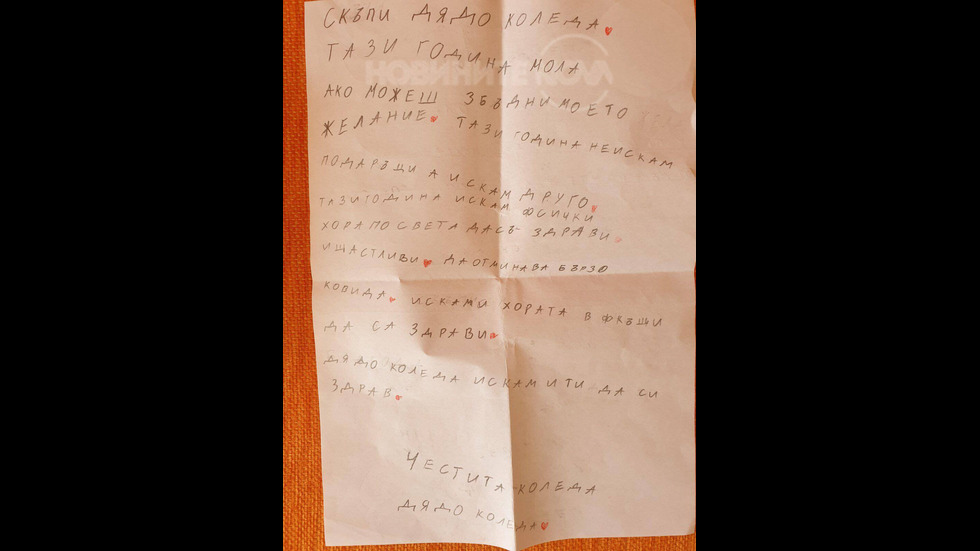 СКЪПИ ДЯДО КОЛЕДА
ТАЗИ ГОДИНА МОЛА
АКО МОЖЕШ ЗБЪДНИ МОЕТО
ЖЕЛАНИЕ ТАЗИ ГОДИНА НЕИСКАМ
ПОДАРЪЦИ А ИСКАМ ДРУГО
ТАЗИ ГОДИНА ИСКАМ ФСИЧКИ
ХОРА ПО СВЕТА ДАСЪ ЗДРАВИ
ИЩАСТЛИВИ ДАОТМИНАВА БЪРЗО
КОВИДА ИСКАМИ ХОРАТА В ФКЪЩИ
ДА СА ЗДРАВИ
ДЯДО КОЛЕДА ИСКАМ ИТИ ДА СИ
ЗДРАВ
ЧЕСТИТА КОЛЕДА
ДЯДО КОЛЕДА